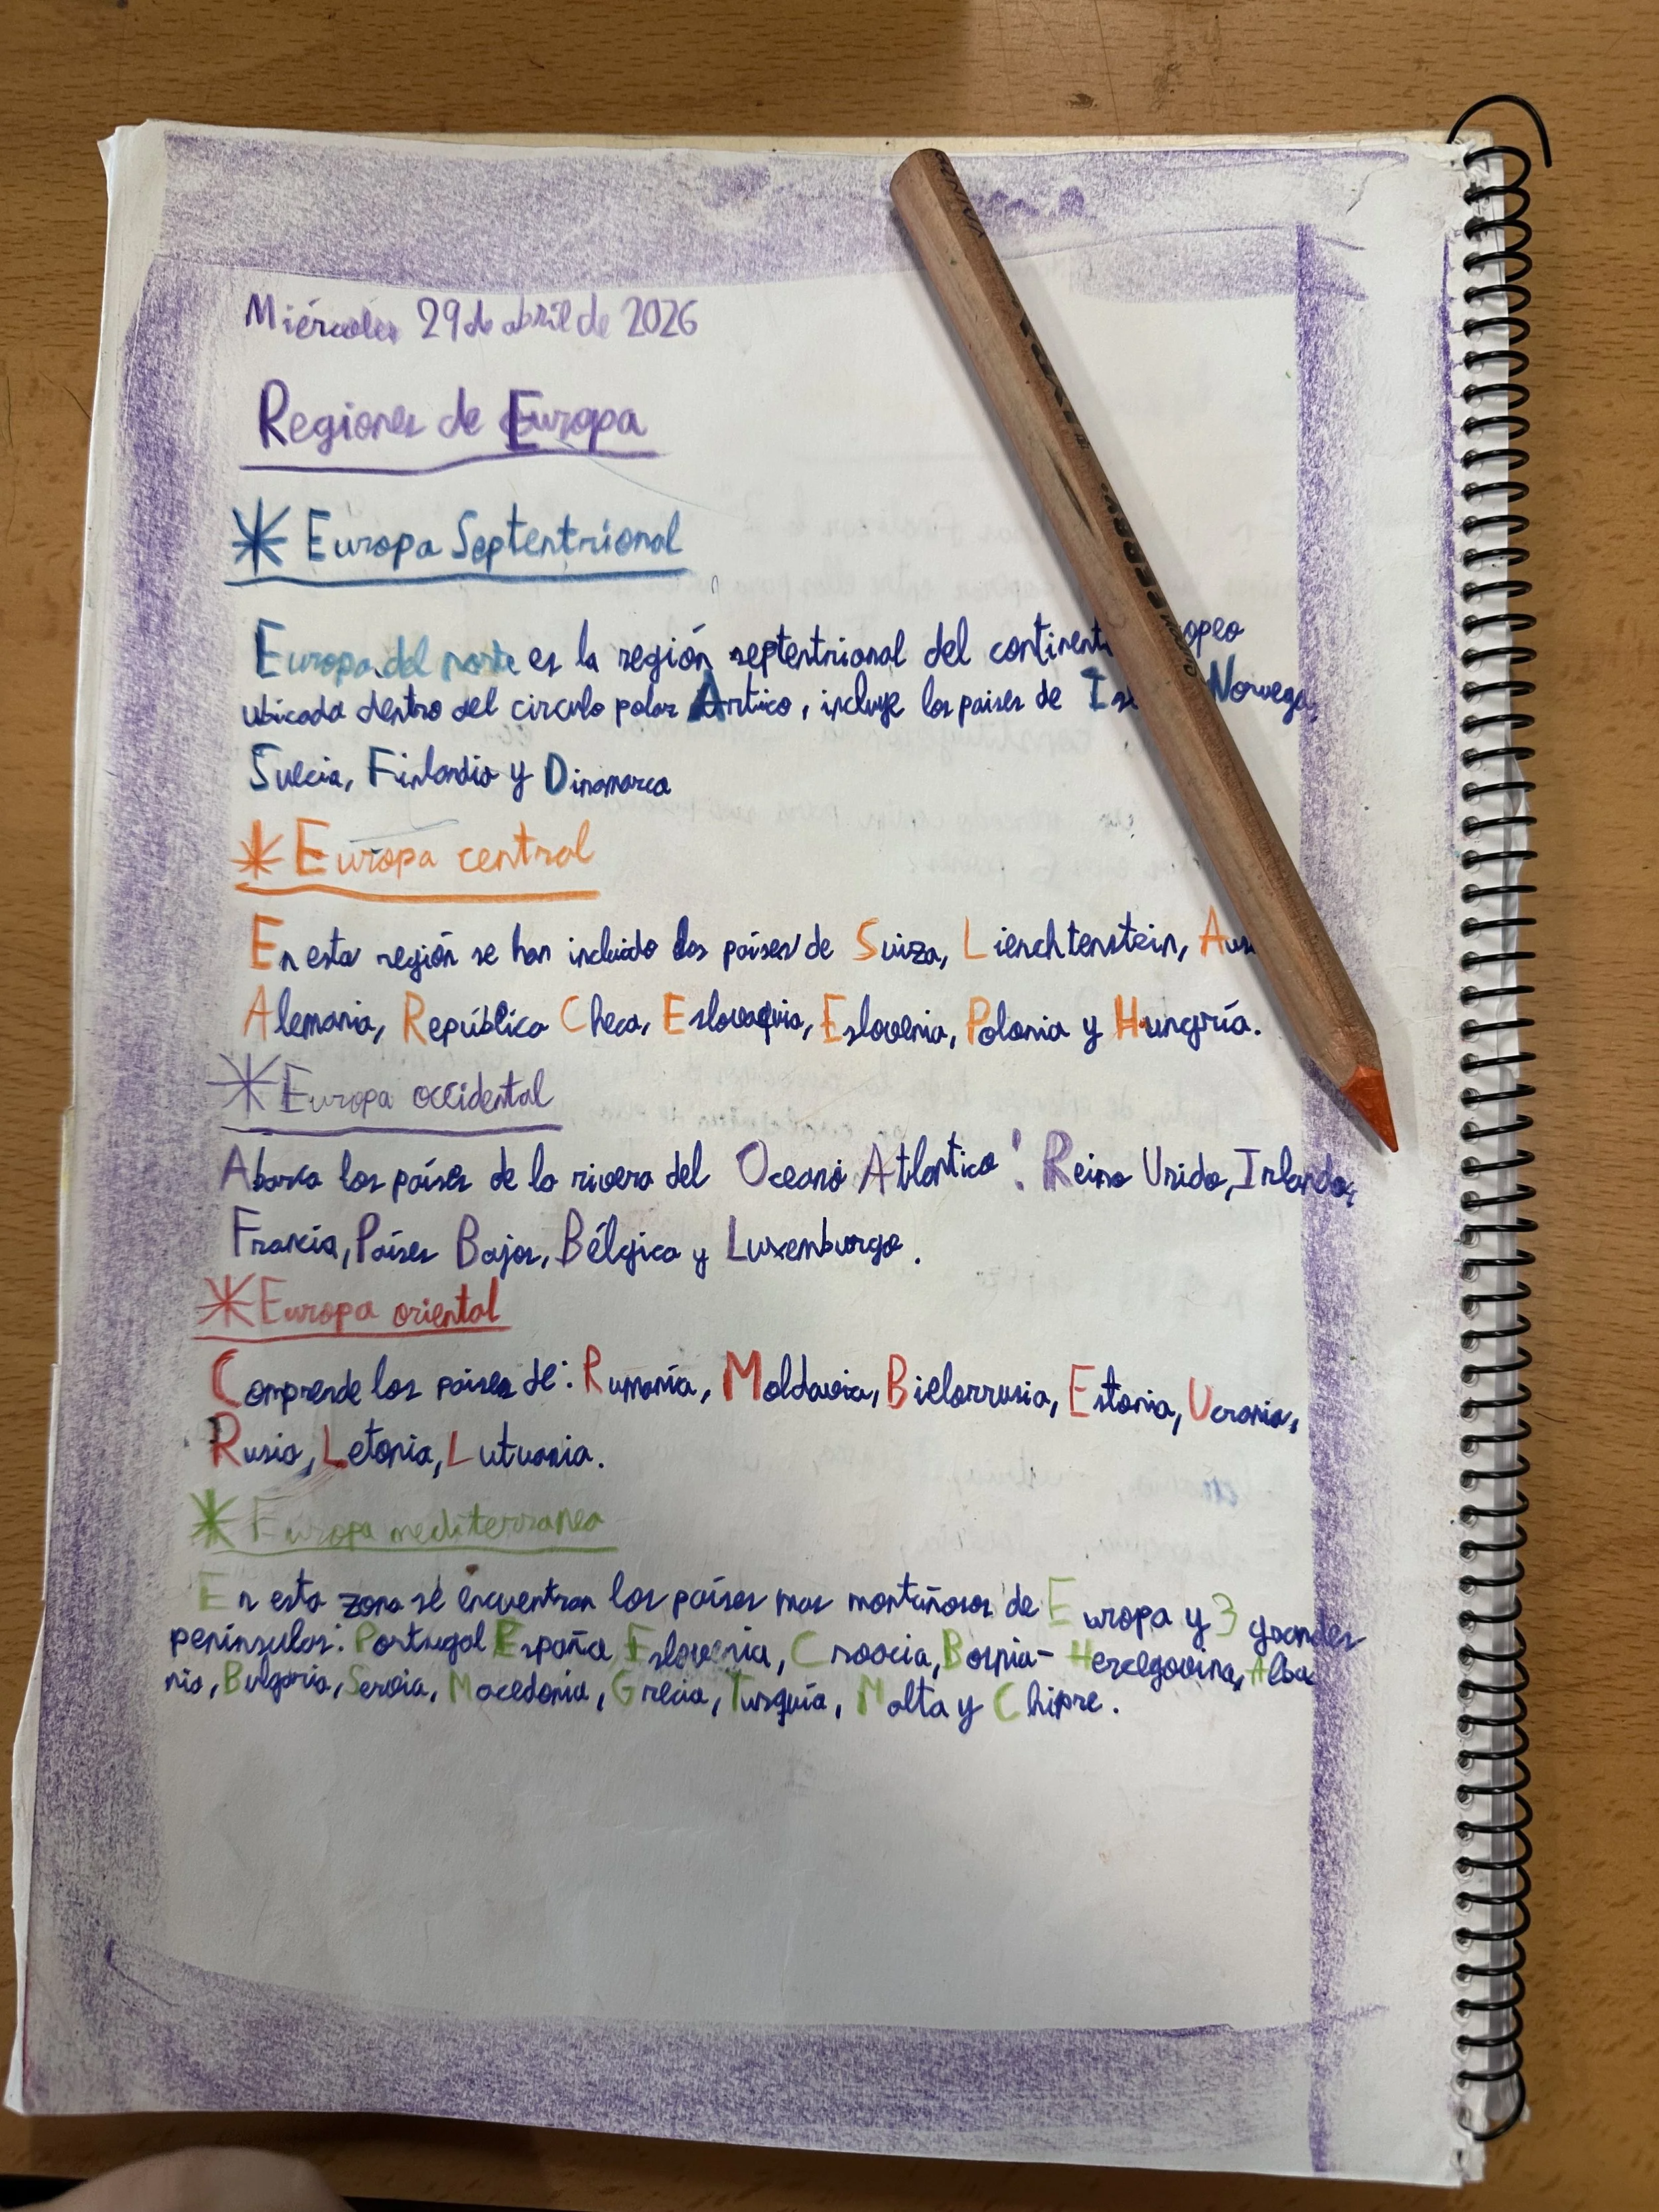 Miércoles 29 de abril de 2026
Regiones de Europa
Europa Septentrional
Europa del norte es la región septentrional del continent opeo
ubicada dentro del circulo polar Artico, incluye los países de Is Noruega,
Suecia, Finlandia y Dinamarca
Europa central
En esta región se han incluido los países de Suiza, Lienchtenstein, Aus
Alemania, República Checa, Eslovaquia, Eslovenia, Polonia y Hungría.
Europa occidental
Abarca los países de la rivera del Oceano Atlantico: Reino Unido, Irlanda,
Francia, Países Bajos, Bélgica y Luxemburgo.
Europa oriental
Comprende los países de: Rumanía, Moldavia, Bielorrusia, Estonia, Ucrania,
Rusia, Letonia, Lutuania.
Europa mediterranea
En esta zona se encuentran los países mas montañosos de Europa y 3 grandes
penínsulas: Portugal España Eslovenia, Croacia, Bosnia-Hercegovina, Alba
nia, Bulgaria, Servia, Macedonia, Grecia, Turquía, Malta y Chipre.